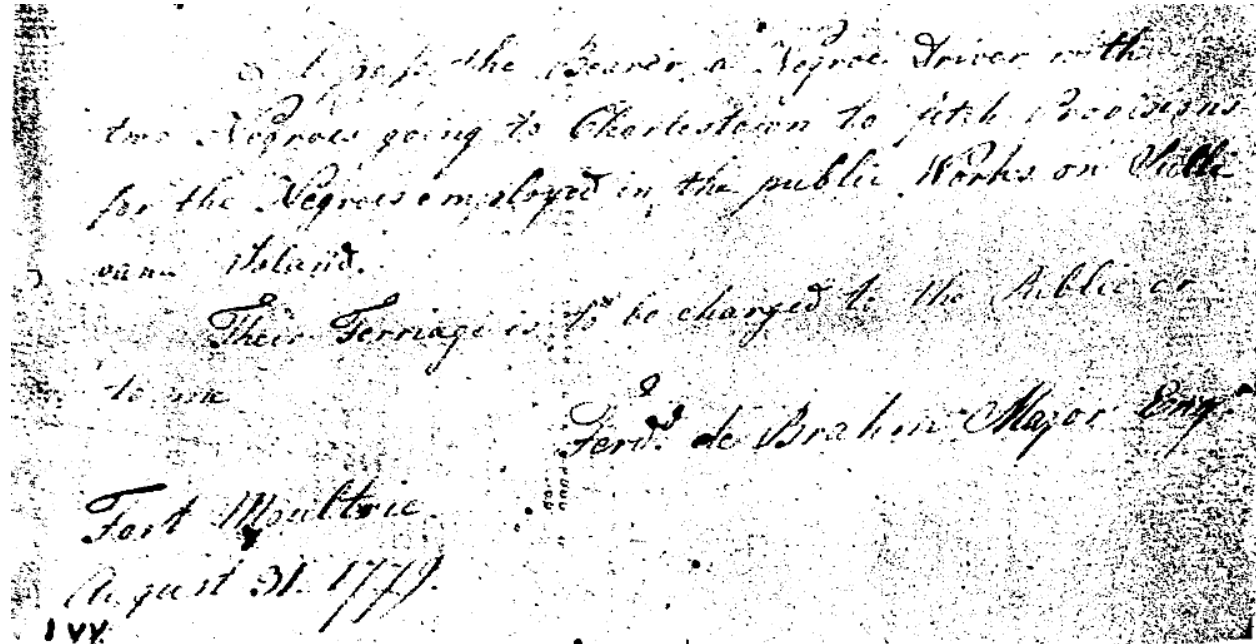 to pass the Bearer, a Negroe Driver with
two Negroes going to Charlestown to fetch Provisions
for the Negroes employed in the public Works on Sulle
vans Island.
Their Ferriage is to be charged to the Public or
to me
Ferd. de Brahm Major Eng.
Fort Moultrie.
August 31. 1779.